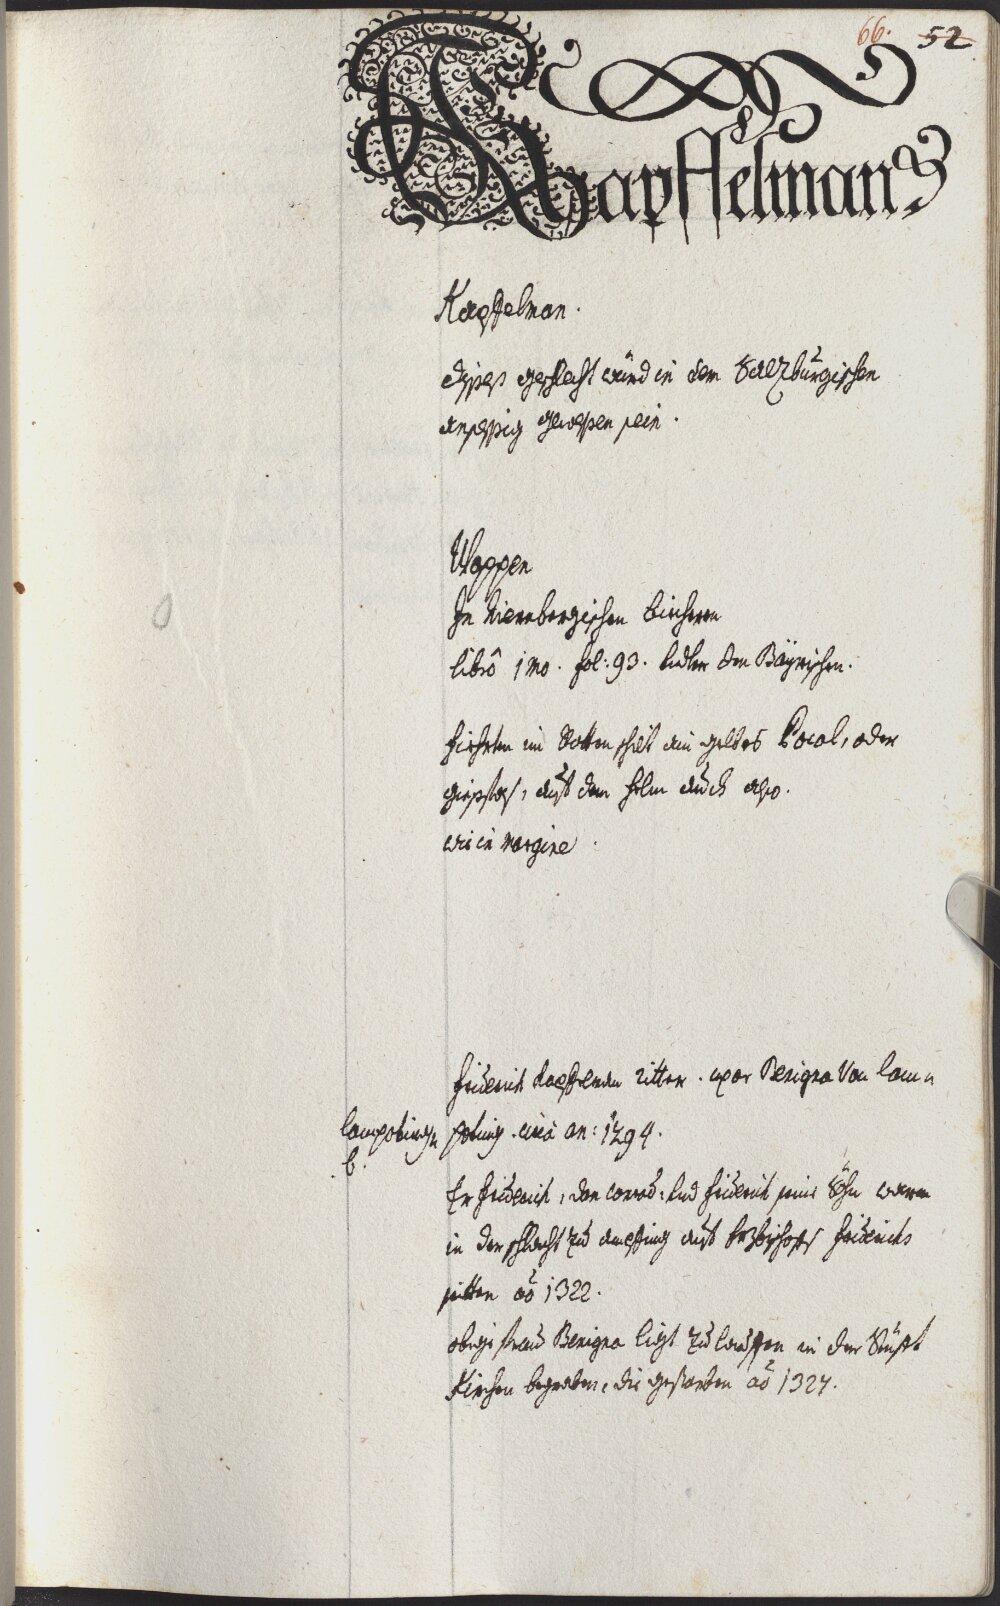 66. 52
Kapffelman
Kapffelman.
dises geschlecht würd in dem Salzburgischen
ansessig gewessen sein.
Wappen
In Niernbergischen biechern
librô 1mo. fol: 93. under den Bäyrischen.
fiehrten im Rotten schilt ain gelbes Pocal, oder
auf dem helm auch also.
wie in margine.
friderich Kapffelman ritter. uxor Benigna Von lam=
lampoting
poting. circà an: 1294.
b.
Er friderich, dan conrad: und friderich seine Söhn waren
in der schlacht zu ampfing auf Erzbischoffs friderichs
seitten aô 1322.
obige frau Benigna ligt zu lauffen in der Stüfft
Kirchen begraben, die gestorben aô 1327.